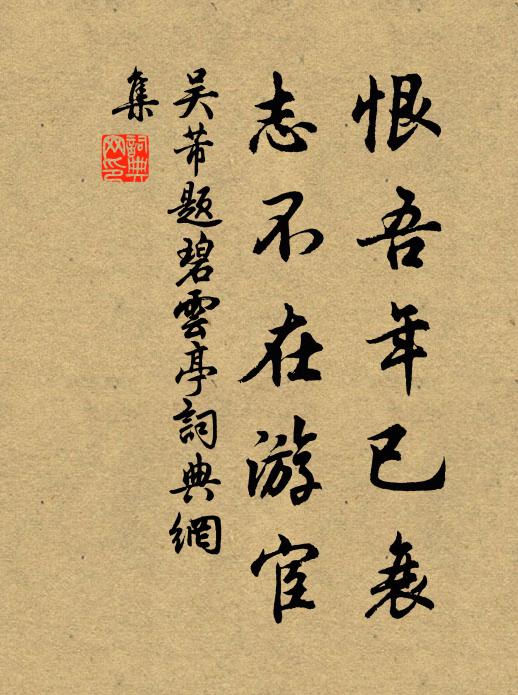 恨吾年已衰
志不在游宦
吴芾题碧雲亭詞典網
集
詞典
网印